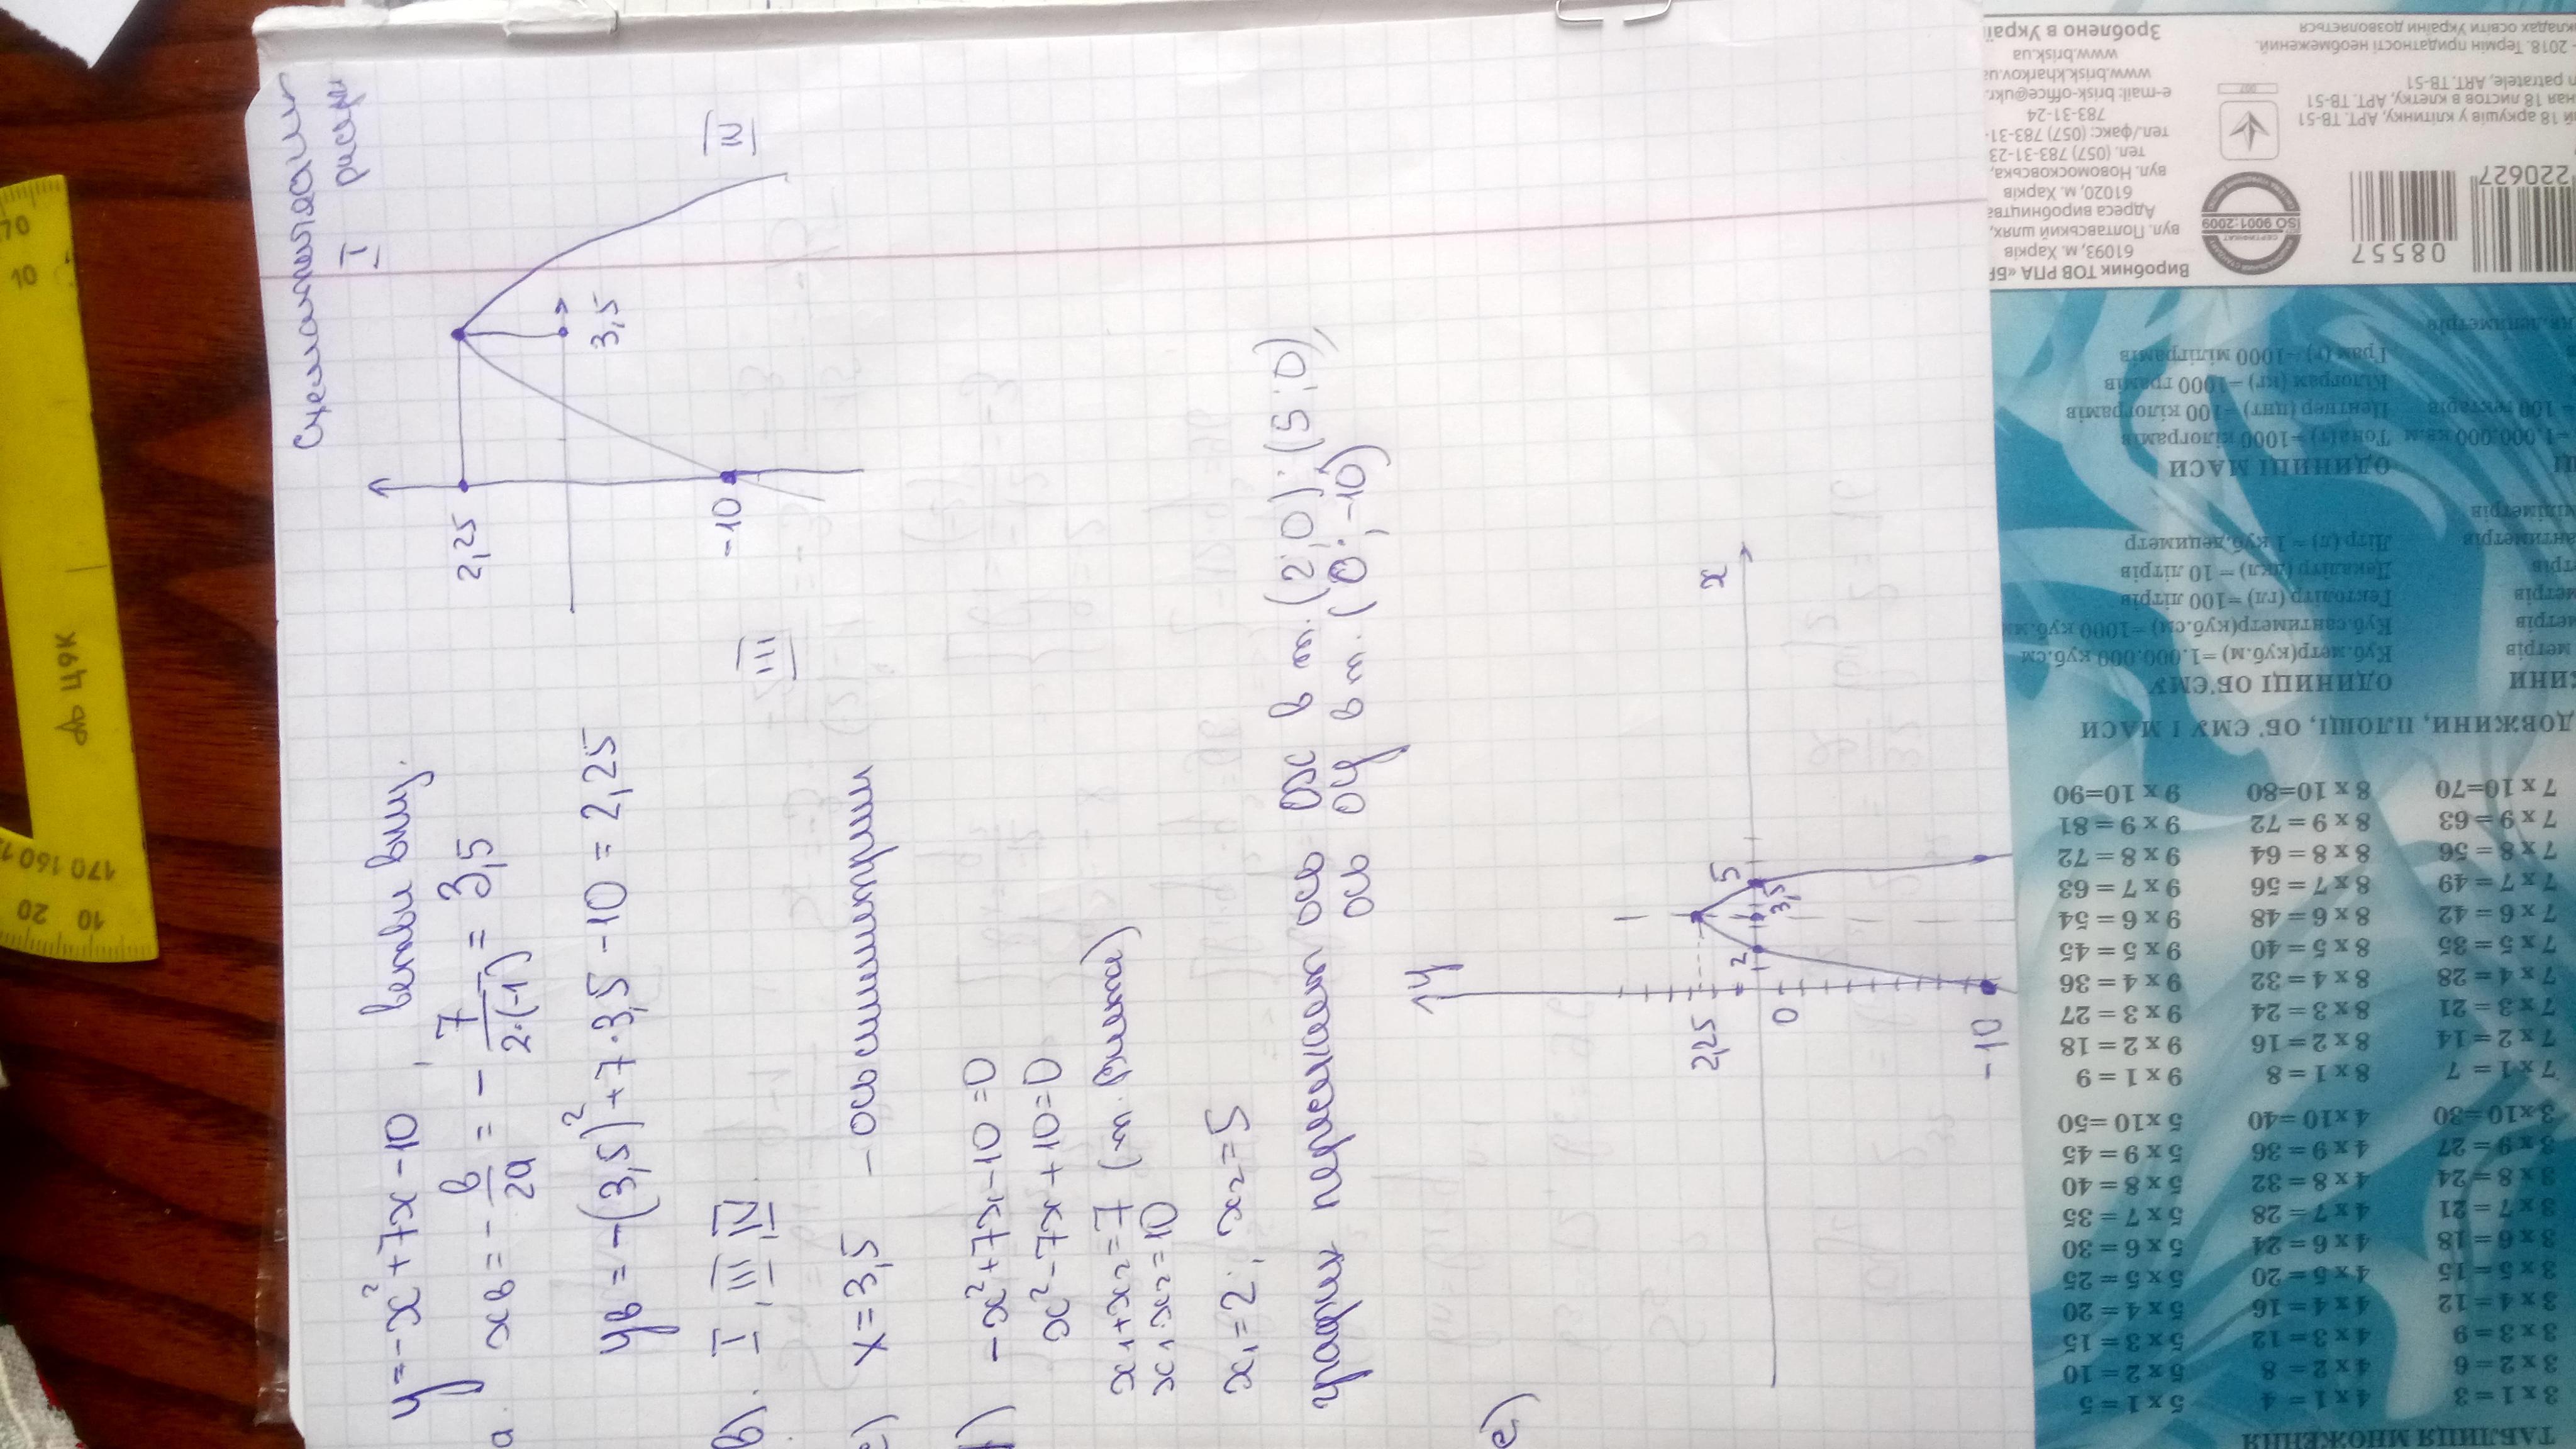 Схематически
I рисун
y=-x²+7x-10, ветви вниз.
a. xв = - в/2a = - 7/2·(-1) = 3,5
yв = -(3,5)²+7·3,5-10=2,25
2,25
3,5
-10
III
IV
в). I, III, IV
x=3,5 - ось симметрии
-x²+7x-10=0
x²-7x+10=0
x₁+x₂=7 (т. Виета)
x₁·x₂=10
x₁=2; x₂=5
график пересекает ось ox в т.(2;0); (5;0),
ось oy в т. (0;-10)
e)
y
x
2,25
2
5
3,5
0
-10
170 160
10 20
70
10
до ЦЯК
Зроблено в Україн
www.brisk.ua
www.brisk.kharkov.ua
e-mail: brisk-office@ukr.
783-31-24
тел./факс: (057) 783-31-
тел. (057) 783-31-23
вул. Новомосковська,
61020, м. Харків
Адреса виробництва
вул. Полтавський шлях,
61093, м. Харків
Виробник ТОВ РПА «БР
кладах освіти України дозволяється
2018. Термін придатності необмежений.
n patratele, ART. TB-51
ная 18 листов в клетку, АРТ. ТВ-51
ий 18 аркушів у клітинку, АРТ. ТВ-51
ISO 9001:2009
220627
08557
Грам (г) =1000 міліграмів
Кілограм (кг) =1000 грамів
Центнер (цнт) =100 кілограмів
Тонна(т) =1000 кілограмів
ОДИНИЦІ МАСИ
Літр (л) = 1 куб.дециметр
Декалітр (дкл) = 10 літрів
Гектолітр (гл) =100 літрів
Куб.сантиметр(куб.см) =1000 куб.мм
Куб.метр(куб.м) =1.000.000 куб.см
ОДИНИЦІ ОБ'ЄМУ
ДОВЖИНИ, ПЛОЩІ, ОБ'ЄМУ І МАСИ
7 x 10=70 8 x 10=80 9 x 10=90
7 x 9 = 63 8 x 9 = 72 9 x 9 = 81
7 x 8 = 56 8 x 8 = 64 9 x 8 = 72
7 x 7 = 49 8 x 7 = 56 9 x 7 = 63
7 x 6 = 42 8 x 6 = 48 9 x 6 = 54
7 x 5 = 35 8 x 5 = 40 9 x 5 = 45
7 x 4 = 28 8 x 4 = 32 9 x 4 = 36
7 x 3 = 21 8 x 3 = 24 9 x 3 = 27
7 x 2 = 14 8 x 2 = 16 9 x 2 = 18
7 x 1 = 7 8 x 1 = 8 9 x 1 = 9
3x10=30 4 x10=40 5 x 10=50
3 x 9 = 27 4 x 9 = 36 5 x 9 = 45
3 x 8 = 24 4 x 8 = 32 5 x 8 = 40
3 x 7 = 21 4 x 7 = 28 5 x 7 = 35
3 x 6 = 18 4 x 6 = 24 5 x 6 = 30
3 x 5 = 15 4 x 5 = 20 5 x 5 = 25
3 x 4 = 12 4 x 4 = 16 5 x 4 = 20
3 x 3 = 9 4 x 3 = 12 5 x 3 = 15
3 x 2 = 6 4 x 2 = 8 5 x 2 = 10
3 x 1 = 3 4 x 1 = 4 5 x 1 = 5
ТАБЛИЦЯ МНОЖЕННЯ